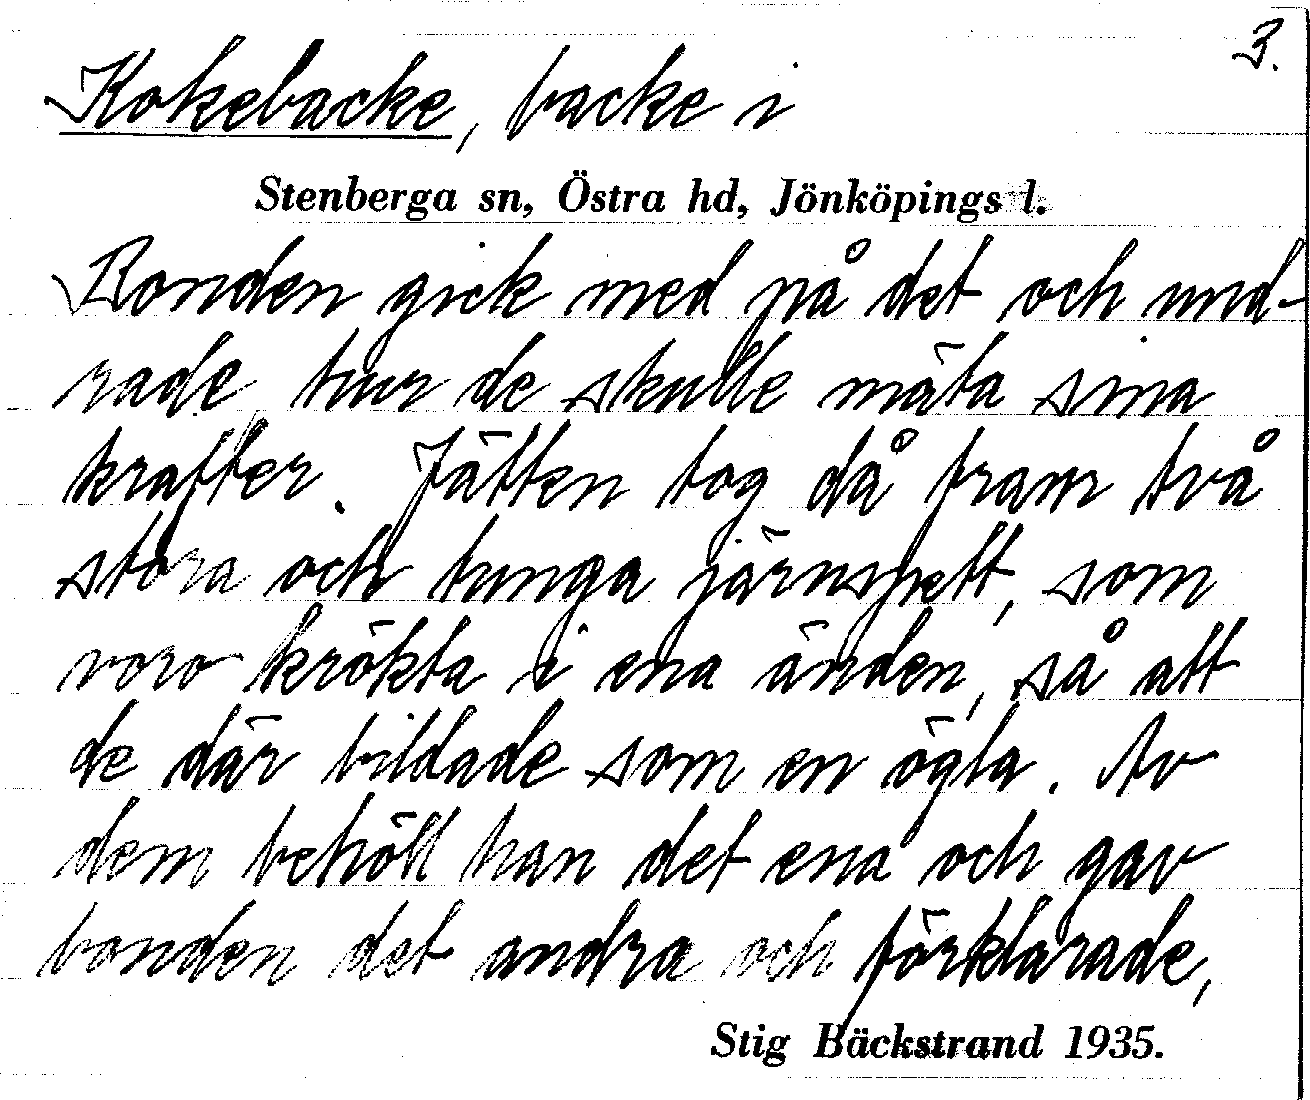 3.
Kokebacke, backe i
Stenberga sn, Östra hd, Jönköpings l.
Bonden gick med på det och und-
rade hur de skulle mäta sina
krafter. Jätten tog då fram två
stora och tunga järnspett, som
voro krökta i ena änden, så att
de där bildade som en ögla. Av
dem behöll han det ena och gav
bonden det andra och förklarade,
Stig Bäckstrand 1935.